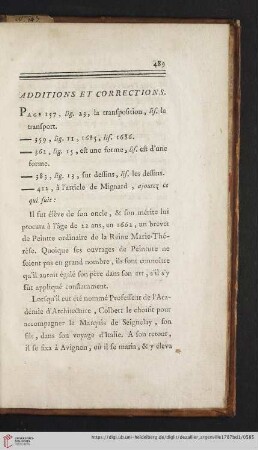 489
ADDITIONS ET CORRECTIONS.
PAGE 157, lig. 25, la transposition, lis. le
transport.
— 359, lig. 11, 1685, lis. 1686.
— 362, lig. 15, est une forme, lis. est d'une
forme.
— 383, lig. 15, sur dessins, lis. les dessins.
— 422, à l'article de Mignard, ajoutez ce
qui suit :
Il fut élève de son oncle, & son mérite lui
procura à l'âge de 22 ans, en 1662, un brevet
de Peintre ordinaire de la Reine Marie-Thé-
rèse. Quoique ses ouvrages de Peinture ne
soient pas en grand nombre, ils sont connoître
qu'il auroit égalé son père dans son art, s'il s'y
fut appliqué constamment.
Lorsqu'il eut été nommé Professeur de l'Aca-
démie d'Architecture, Colbert le choisit pour
accompagner le Marquis de Seignelay, son
fils, dans son voyage d'Italie. A son retour,
il se fixa à Avignon, où il se maria, & y éleva
https://digi.ub.uni-heidelberg.de/diglit/